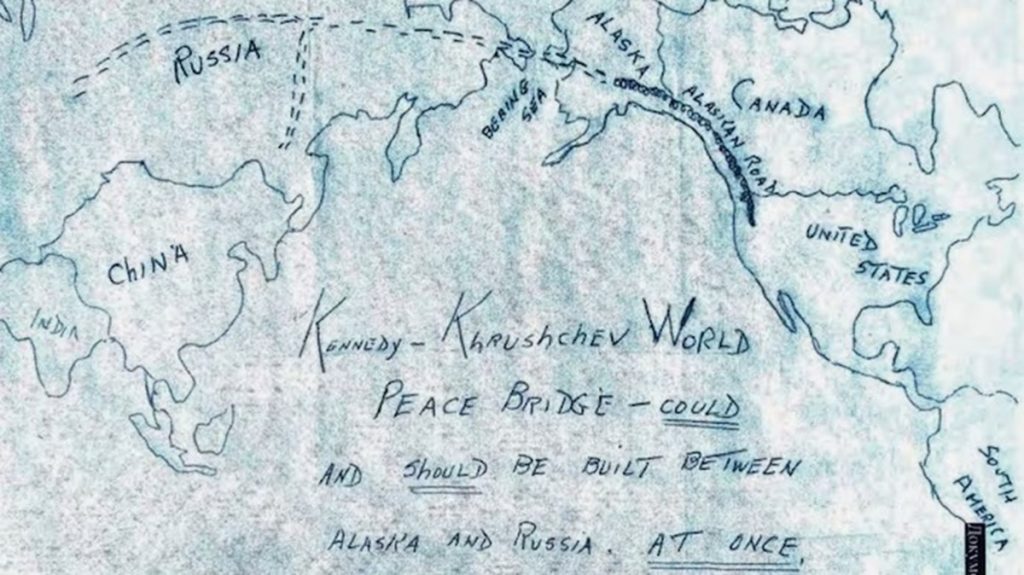 RUSSIA
ALASKA
CANADA
BERING
SEA
ALASKAN ROAD
UNITED
STATES
CHINA
INDIA
KENNEDY – KHRUSHCHEV WORLD
PEACE BRIDGE – COULD
AND SHOULD BE BUILT BETWEEN
ALASKA AND RUSSIA. AT ONCE.
SOUTH
AMERICA